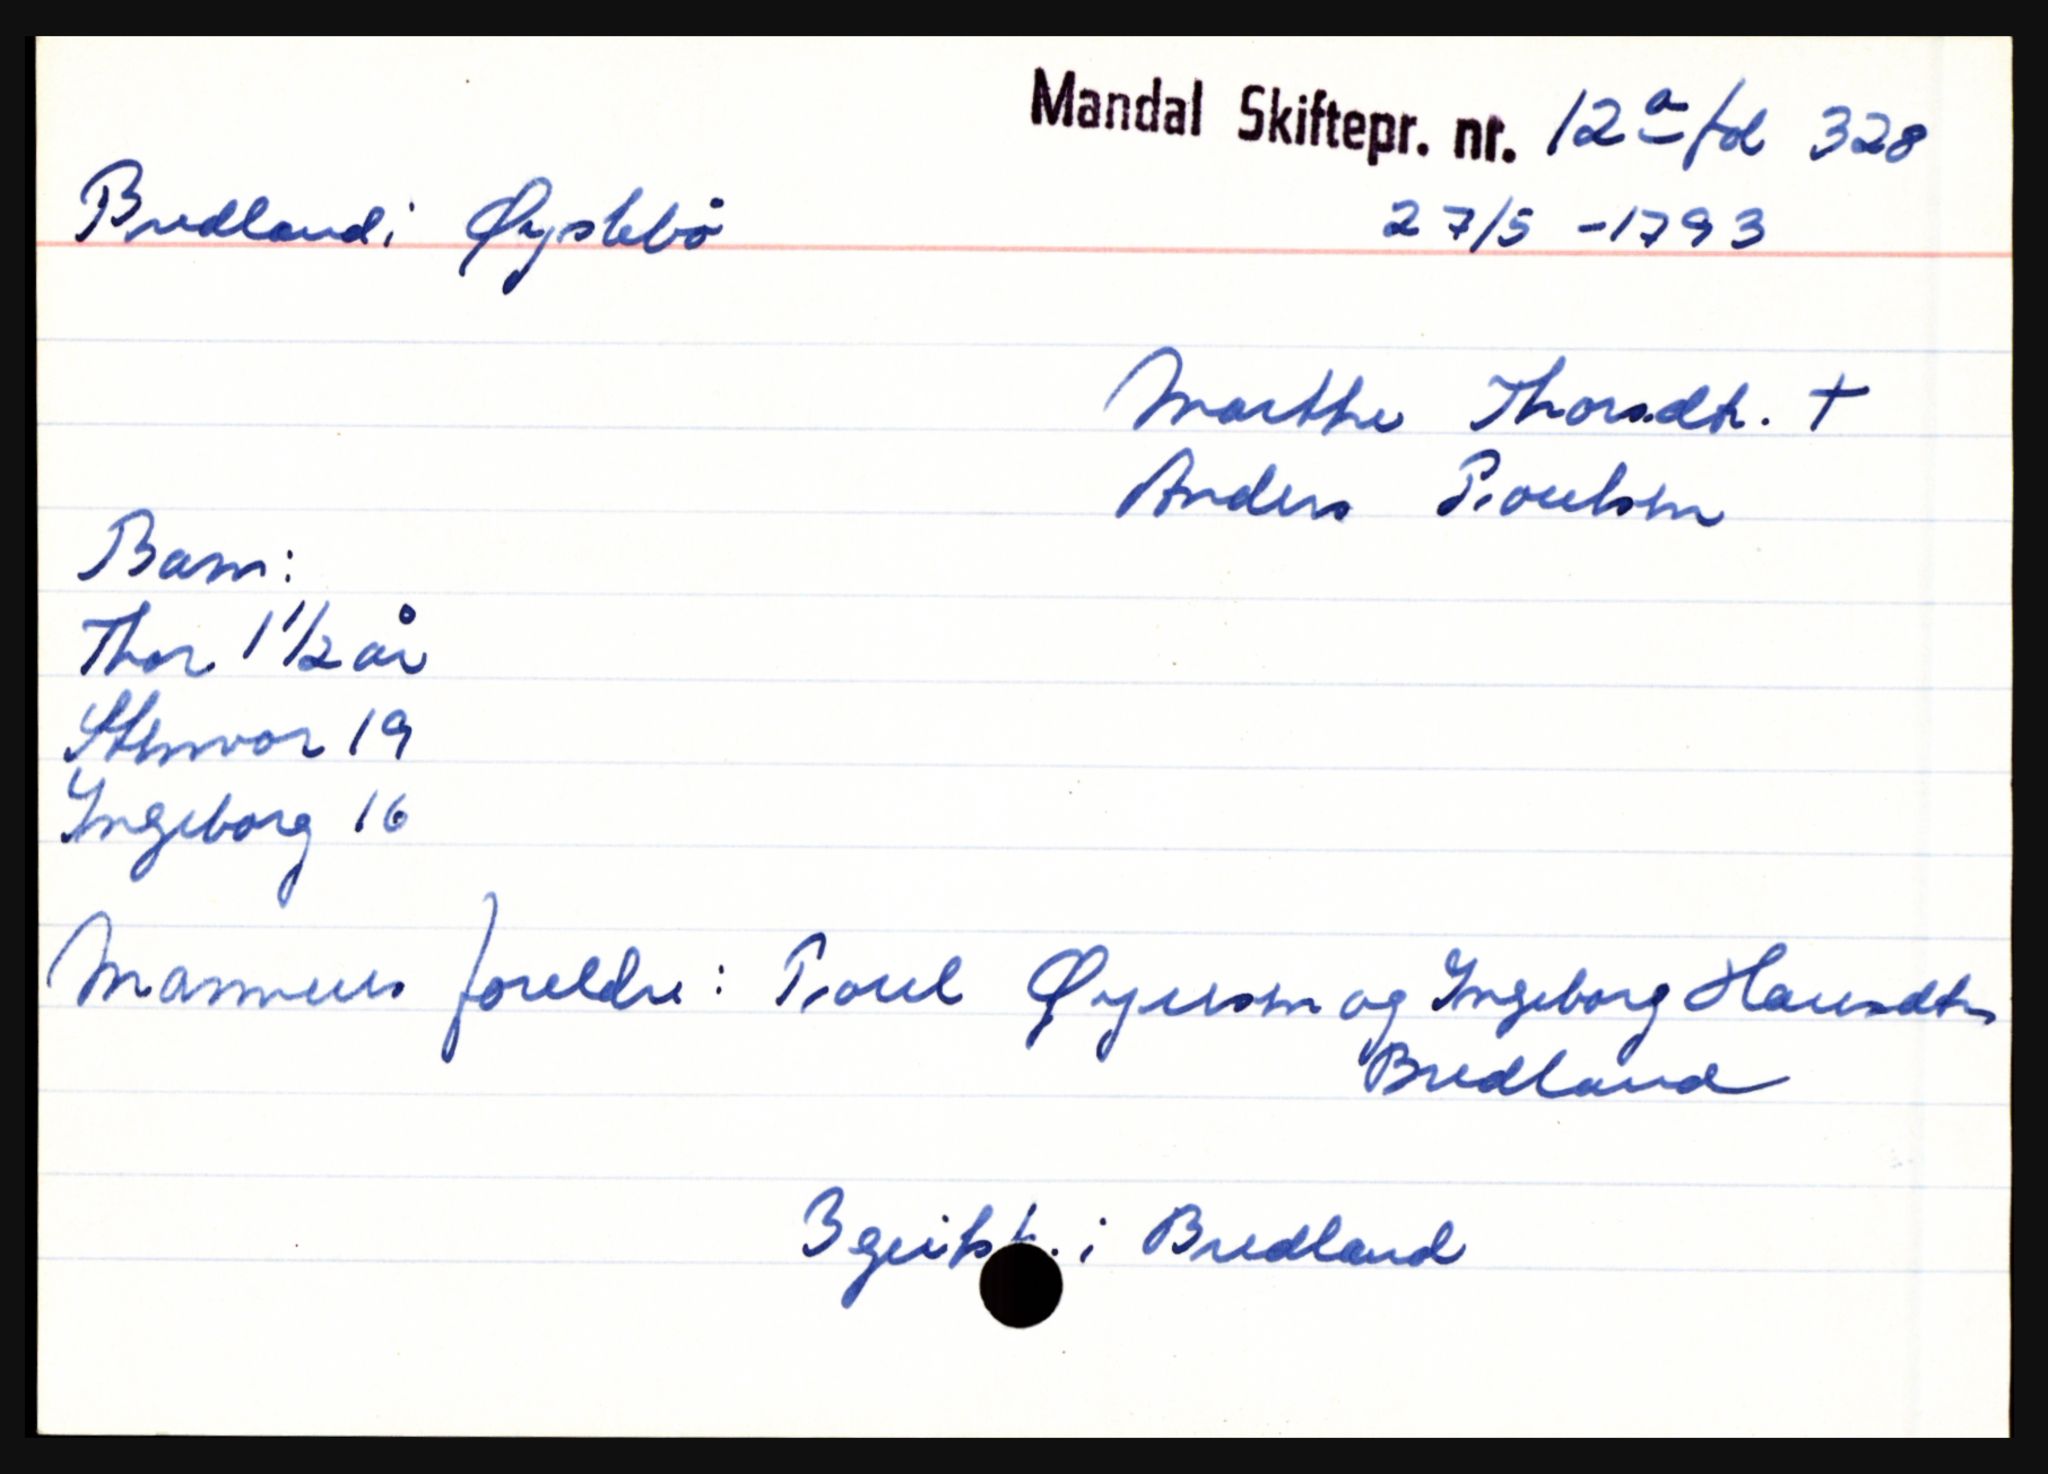 Mandal Skiftepr. nr. 12a fol 328
Bredland i Øyslebö 27/5 - 1793
Marthe Thorsdtr. †
Anders Poulsen
Barn:
Thor 1 1/2 år
Stenvor 19
Ingeborg 16
Mannens foreldre: Poul Øyersen og Ingeborg Hansdtr
Bredland
3 i Bredland